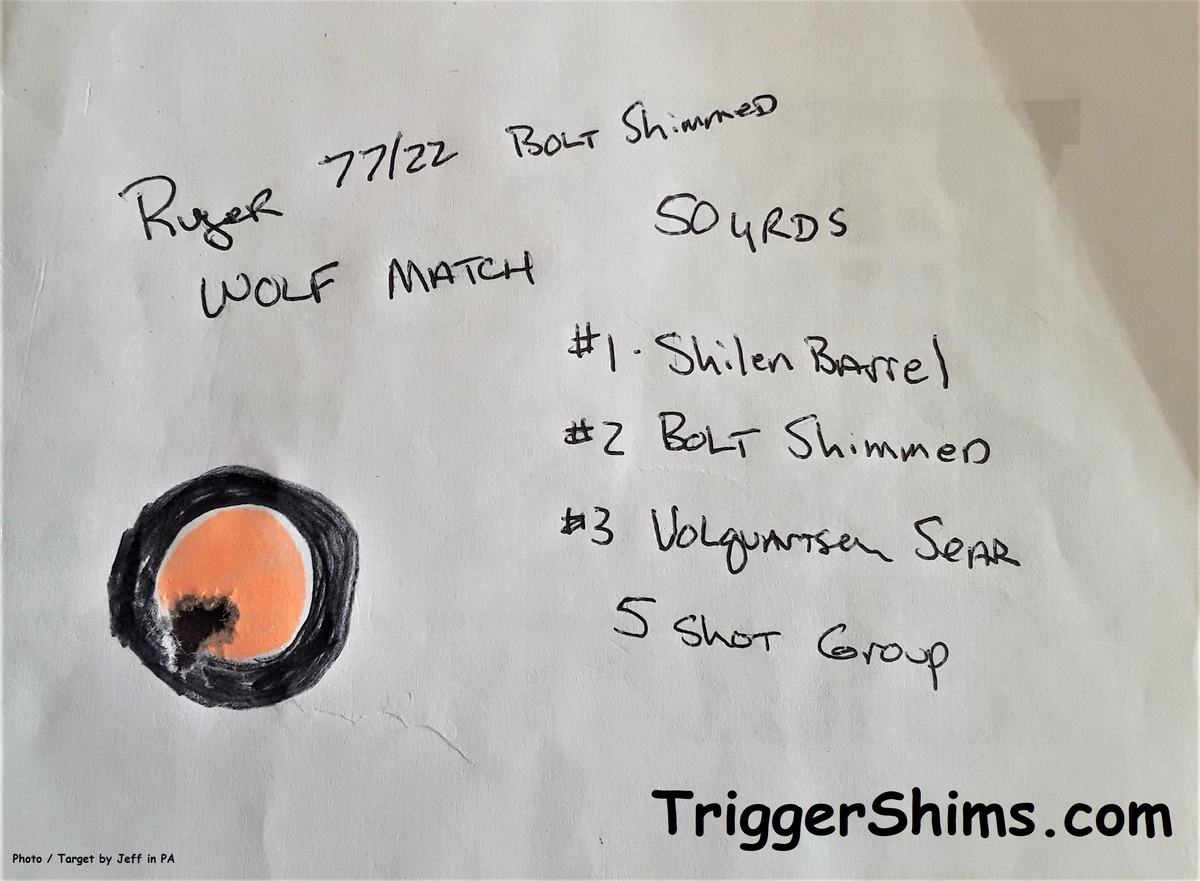 Ruger 77/22 BOLT ShimmeD
50 yRDS
WOLF MATCH
#1. Shilen BArrel
#2 BOLT ShimmeD
#3 VolquArtsen SeAR
5 ShoT Group
TriggerShims.com
Photo / Target by Jeff in PA